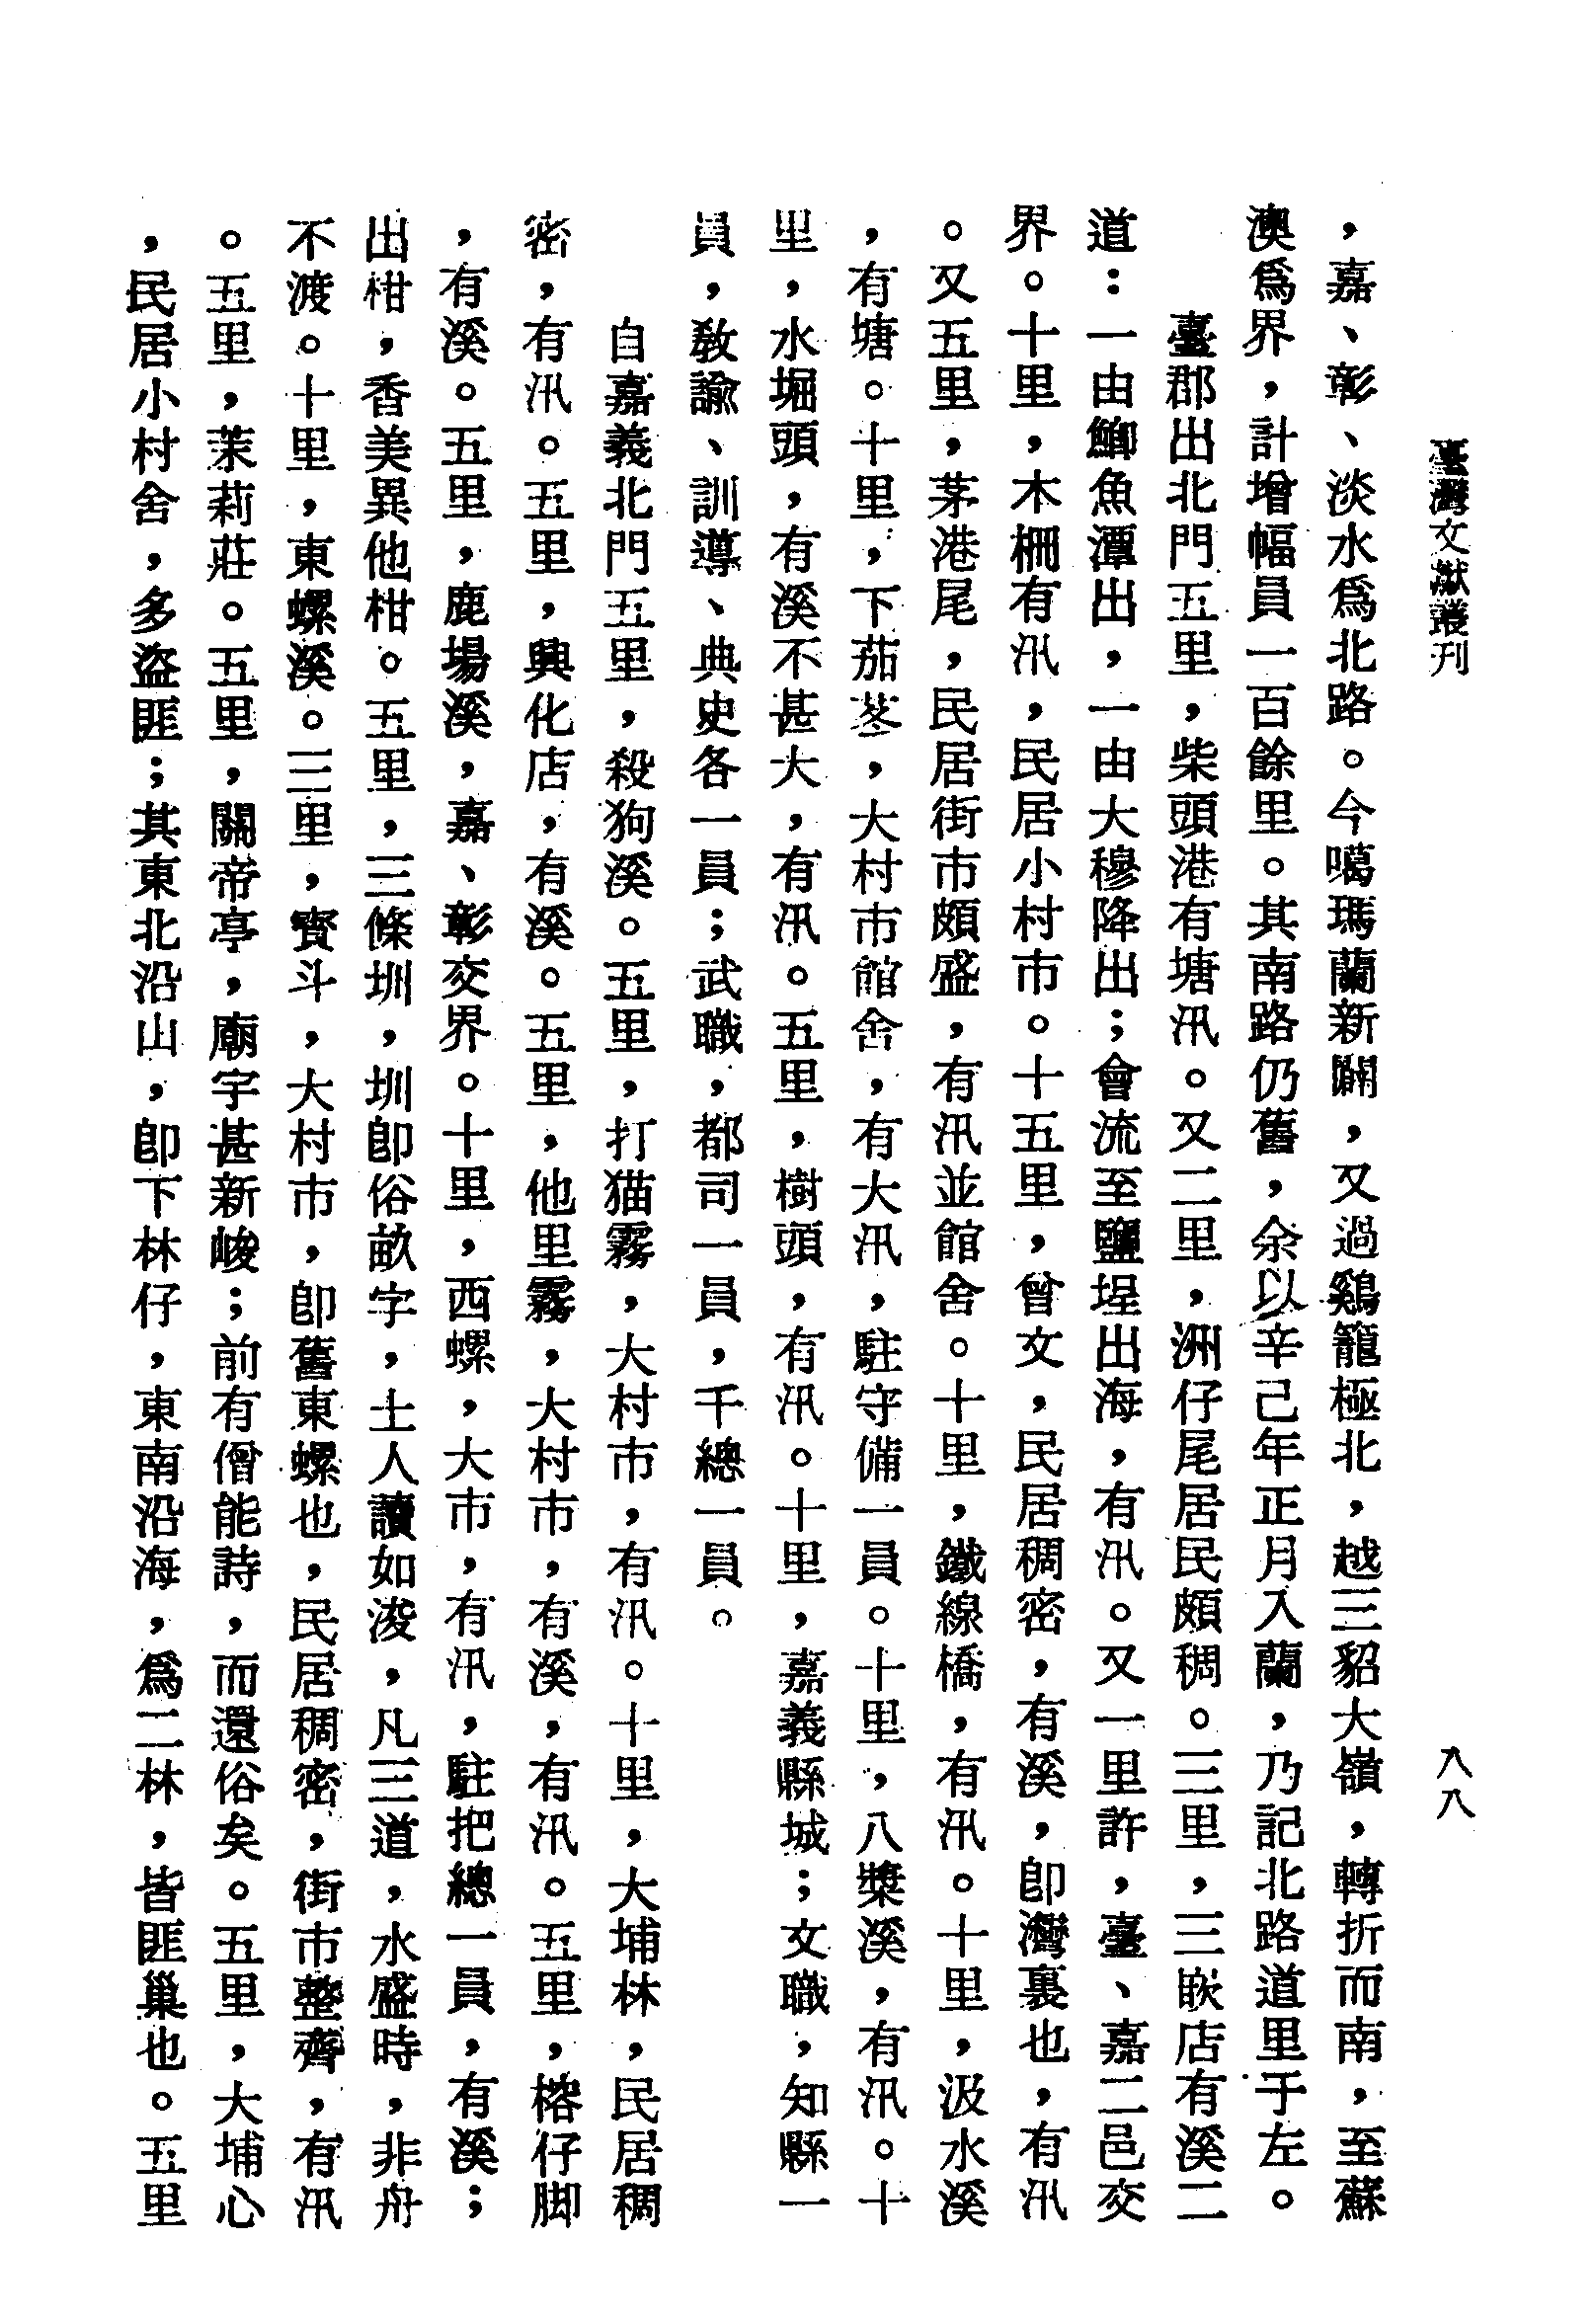 臺灣文獻叢刊
八八
，嘉、彰、淡水爲北路。今噶瑪蘭新闢，又過鷄籠極北，越三貂大嶺，轉折而南，至蘇
澳爲界，計增幅員一百餘里。其南路仍舊，余以辛巳年正月入蘭，乃記北路道里于左。
臺郡出北門五里，柴頭港有塘汛。又二里，洲仔尾居民頗稠。三里，三嵌店有溪二
道：一由鯽魚潭出，一由大穆降出；會流至鹽埕出海，有汛。又一里許，臺、嘉二邑交
界。十里，木柵有汛，民居小村市。十五里，曾文，民居稠密，有溪，卽灣裏也，有汛
。又五里，茅港尾，民居街市頗盛，有汛並館舍。十里，鐵線橋，有汛。十里，汲水溪
，有塘。十里，下茄苳，大村市館舍，有大汛，駐守備一員。十里，八槳溪，有汛。十
里，水堀頭，有溪不甚大，有汛。五里，樹頭，有汛。十里，嘉義縣城；文職，知縣一
員，敎諭、訓導、典史各一員；武職，都司一員，千總一員。
自嘉義北門五里，殺狗溪。五里，打猫霧，大村市，有汛。十里，大埔林，民居稠
密，有汛。五里，興化店，有溪。五里，他里霧，大村市，有溪，有汛。五里，榕仔脚
，有溪。五里，鹿場溪，嘉、彰交界。十里，西螺，大市，有汛，駐把總一員，有溪；
出柑，香美異他柑。五里，三條圳，圳卽俗畝字，土人讀如浚，凡三道，水盛時，非舟
不渡。十里，東螺溪。三里，寶斗，大村市，卽舊東螺也，民居稠密，街市整齊，有汛
。五里，茉莉莊。五里，關帝亭，廟宇甚新峻；前有僧能詩，而還俗矣。五里，大埔心
，民居小村舍，多盜匪；其東北沿山，卽下林仔，東南沿海，爲二林，皆匪巢也。五里